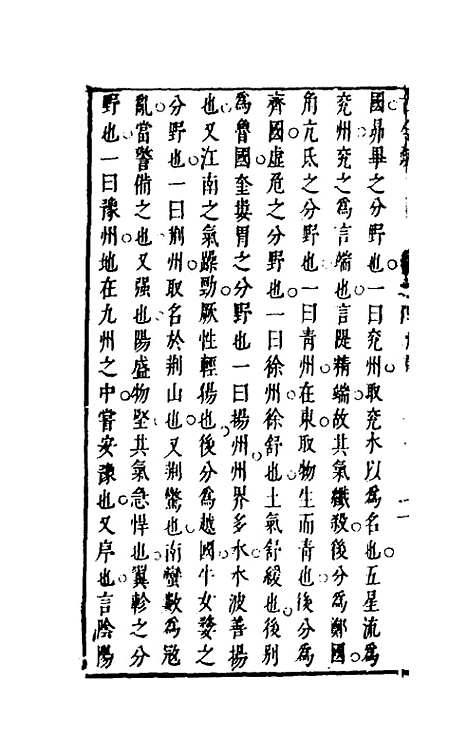 國昴畢之分野也一曰兖州取兖水以爲名也五星流爲
兖州兖之爲言端也言隄精端故其氣纎殺後分爲鄭國
角亢氐之分野也一曰青州在東取物生而青也後分爲
齊國虛危之分野也一曰徐州徐舒也土氣舒緩也後别
爲魯國奎婁胃之分野也一曰揚州州界多水水波善揚
也又江南之氣躁勁厥性輕揚也後分爲越國牛女婺之
分野也一曰荆州取名於荆山也又荆驚也南蠻數爲冦
亂當警備之也又强也陽盛物堅其氣急悍也翼軫之分
野也一曰豫州地在九州之中嘗安豫也又序也言陰陽